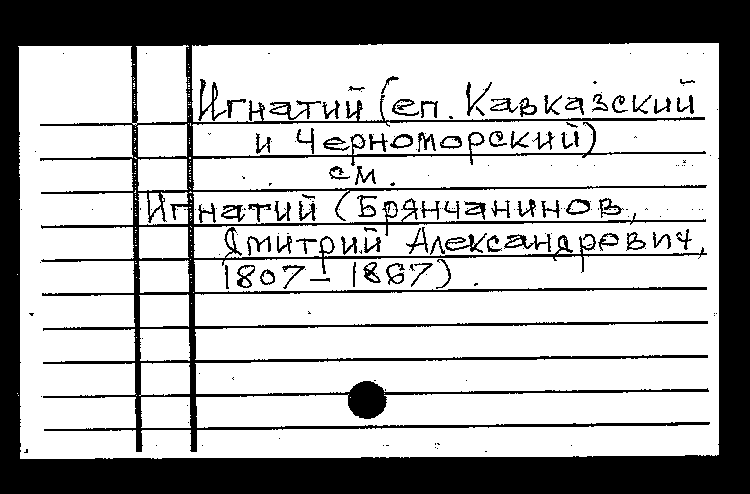 Игнатий (еп. Кавказский
и Черноморский)
см.
Игнатий (Брянчанинов,
Дмитрий Александрович,
1807–1867).